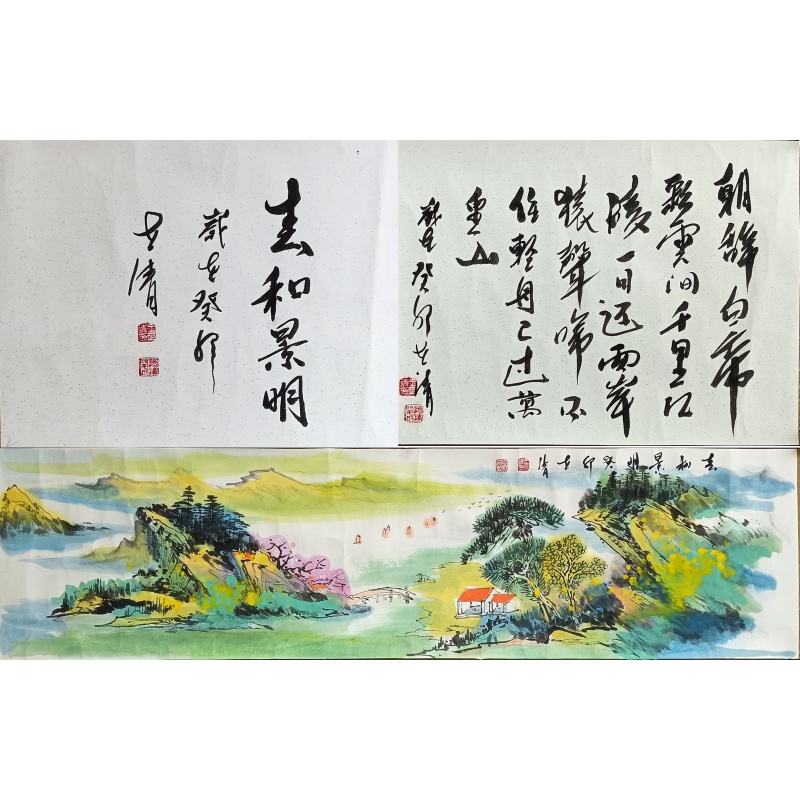 春和景明
歲在癸卯
清
朝辭白帝
彩雲间千里江
陵一日还兩岸
猿聲啼不
住輕舟已过萬
重山
歲在癸卯 清
春和景明 癸卯 清